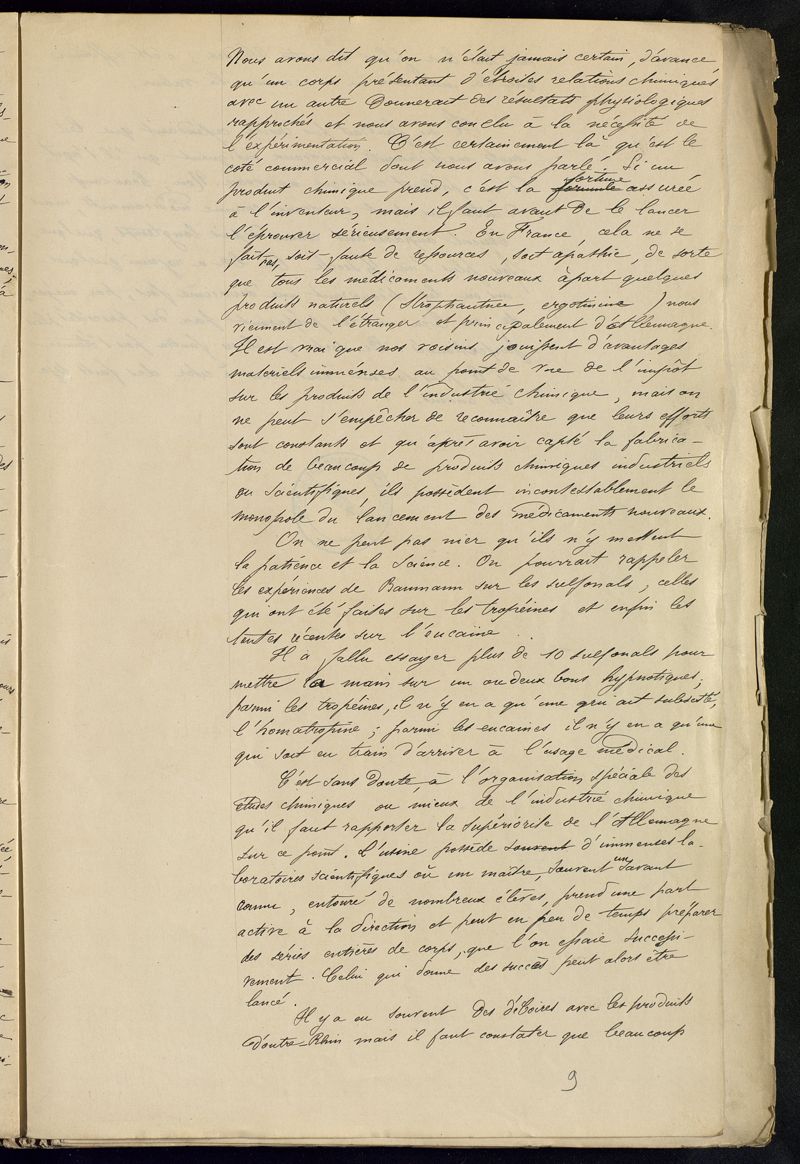 Nous avons dit qu'on n'était jamais certain, d'avance,
qu'un corps présentant d'étroites relations chimiques
avec un autre donnerait des résultats physiologiques
rapprochés et nous avons conclu à la nécessité de
l'expérimentation. C'est certainement là qu'est le
coté commercial dont nous avons parlé. Si un
produit chimique prend, c'est la formule fortune assurée
à l'inventeur, mais il faut avant de le lancer
l'éprouver sérieusement. En France, cela ne se
fait pas, soit faute de ressources, soit apathie, de sorte
que tous les médicaments nouveaux àpart quelques
produits naturels (Strophantine, ergotinine) nous
viennent de l'étranger et principalement d'Allemagne.
Il est vrai que nos voisins jouissent d'avantages
materiels immenses au point de vue de l'impôt
sur les produits de l'industrie chimique, mais on
ne peut s'empêcher de reconnaître que leurs efforts
sont constants et qu'après avoir capté la fabrica-
tion de beaucoup de produits chimiques industriels
ou scientifiques, ils possèdent incontestablement le
monopole du lancement des médicaments nouveaux.
On ne peut pas nier qu'ils n'y mettent
la patience et la science. On pourrait rappeler
les expériences de Baumann sur les sulfonals, celles
qui ont été faites sur les tropéines et enfin les
toutes récentes sur l'eucaïne . .
Il a fallu essayer plus de 10 sulfonals pour
mettre la main sur un ou deux bons hypnotiques;
parmi les tropéines, il n'y en a qu'une qui ait subsisté,
l'homatropine; parmi les eucaines il n'y en a qu'une
qui soit en train d'arriver à l'usage médical.
C'est sans doute, à l'organisation spéciale des
études chimiques ou mieux de l'industrie chimique
qu'il faut rapporter la supériorité de l'Allemagne
sur ce point. L'usine possède souvent d'immenses la-
boratoires scientifiques où un maître, souvent un savant
connu, entouré de nombreux élèves, prend une part
active à la direction et peut en peu de temps préparer
des séries entières de corps, que l'on essaie successi-
vement. Celui qui donne des succès peut alors être
lancé.
Il y a eu souvent des déboires avec les produits
d'outre-Rhin mais il faut constater que beaucoup
9